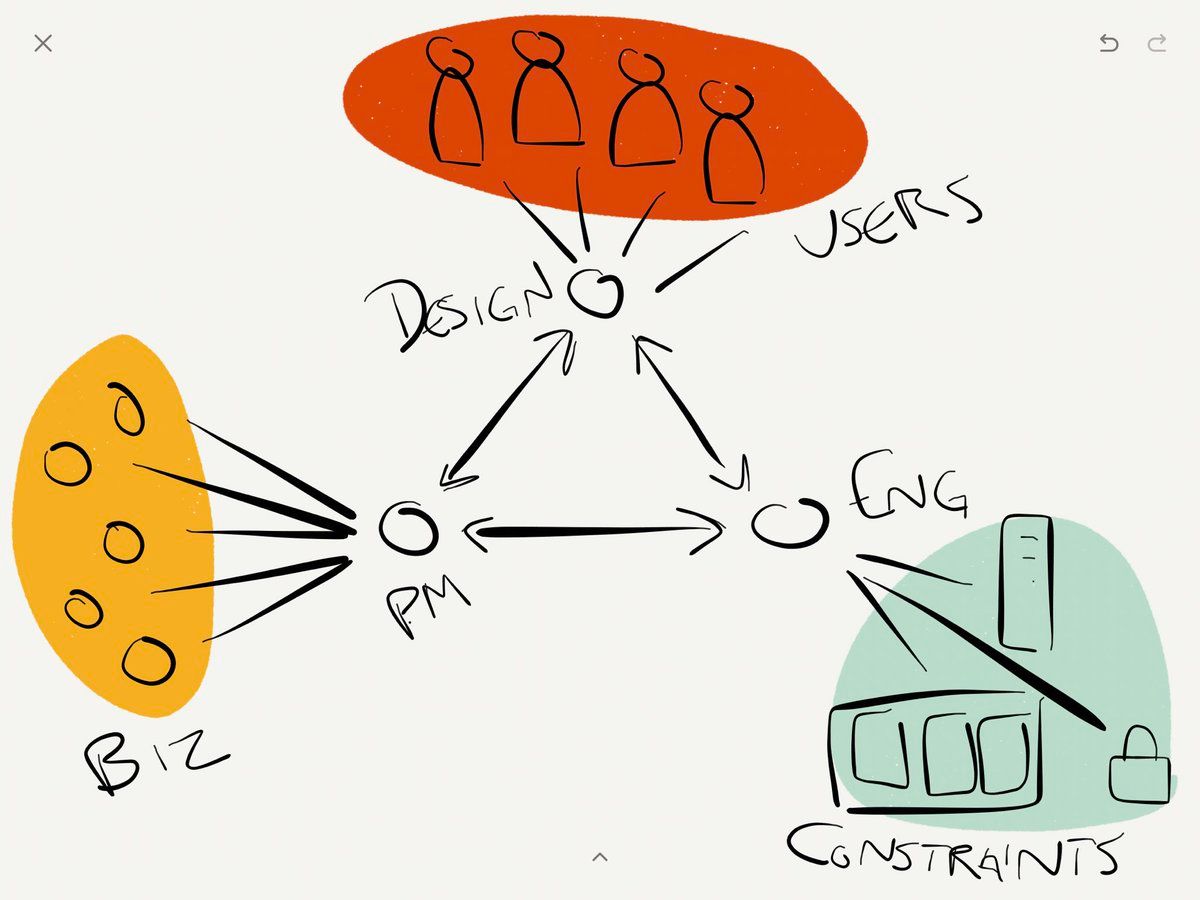 USERS
DESIGN
ENG
PM
BIZ
CONSTRAINTS